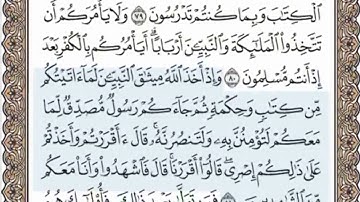 ٱلْكِتَٰبَ وَبِمَا كُنتُمْ تَدْرُسُونَ ٧٩ وَلَا يَأْمُرَكُمْ أَن
تَتَّخِذُوا۟ ٱلْمَلَٰٓئِكَةَ وَٱلنَّبِيِّـۧنَ أَرْبَابًا ۗ أَيَأْمُرُكُم بِٱلْكُفْرِ بَعْدَ
إِذْ أَنتُم مُّسْلِمُونَ ٨٠ وَإِذْ أَخَذَ ٱللَّهُ مِيثَٰقَ ٱلنَّبِيِّـۧنَ لَمَآ ءَاتَيْتُكُم
مِّن كِتَٰبٍ وَحِكْمَةٍ ثُمَّ جَآءَكُمْ رَسُولٌ مُّصَدِّقٌ لِّمَا
مَعَكُمْ لَتُؤْمِنُنَّ بِهِۦ وَلَتَنصُرُنَّهُۥ ۚ قَالَ ءَأَقْرَرْتُمْ وَأَخَذْتُمْ
عَلَىٰ ذَٰلِكُمْ إِصْرِى ۖ قَالُوٓا۟ أَقْرَرْنَا ۚ قَالَ فَٱشْهَدُوا۟ وَأَنَا۠ مَعَكُم